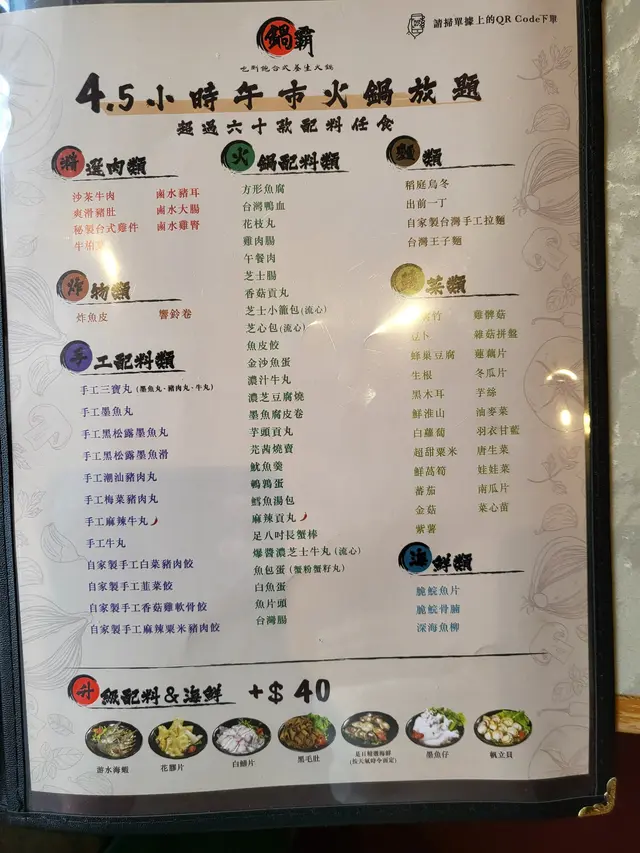 鍋霸
請掃單據上的QR Code下單
吃到飽台式養生火鍋
4.5小時午市火鍋放題
超過六十款配料任食
精選肉類
沙茶牛肉 鹵水豬耳
爽滑豬肚 鹵水大腸
秘製台式雞件 鹵水雞腎
牛柏葉
炸物類
炸魚皮 響鈴卷
手工配料類
手工三寶丸(墨魚丸、豬肉丸、牛丸)
手工墨魚丸
手工黑松露墨魚丸
手工黑松露墨魚滑
手工潮汕豬肉丸
手工梅菜豬肉丸
手工麻辣牛丸
手工牛丸
自家製手工白菜豬肉餃
自家製手工韮菜餃
自家製手工香菇雞軟骨餃
自家製手工麻辣粟米豬肉餃
火鍋配料類
方形魚腐
台灣鴨血
花枝丸
雞肉腸
午餐肉
芝士腸
香菇貢丸
芝士小籠包(流心)
芝心包(流心)
魚皮餃
金沙魚蛋
濃汁牛丸
濃芝豆腐燒
墨魚腐皮卷
芋頭貢丸
芫茜燒賣
魷魚羹
鵪鶉蛋
鱈魚湯包
麻辣貢丸
足八吋長蟹棒
爆醬濃芝士牛丸(流心)
魚包蛋(蟹粉蟹籽丸)
白魚蛋
魚片頭
台灣腸
麵類
稻庭烏冬
出前一丁
自家製台灣手工拉麵
台灣王子麵
蔬菜類
竹 雞髀菇
卜 雜菇拼盤
蜂巢豆腐 蓮藕片
生根 冬瓜片
黑木耳 芋絲
鮮淮山 油麥菜
白蘿蔔 羽衣甘藍
超甜粟米 唐生菜
鮮萵筍 娃娃菜
蕃茄 南瓜片
金菇 菜心苗
紫薯
海鮮類
脆鯇魚片
脆鯇骨腩
深海魚柳
升級配料&海鮮 +$40
游水海蝦 花膠片 白鱔片 黑毛肚 是日精選海鮮 墨魚仔 帆立貝
(按天氣時令而定)